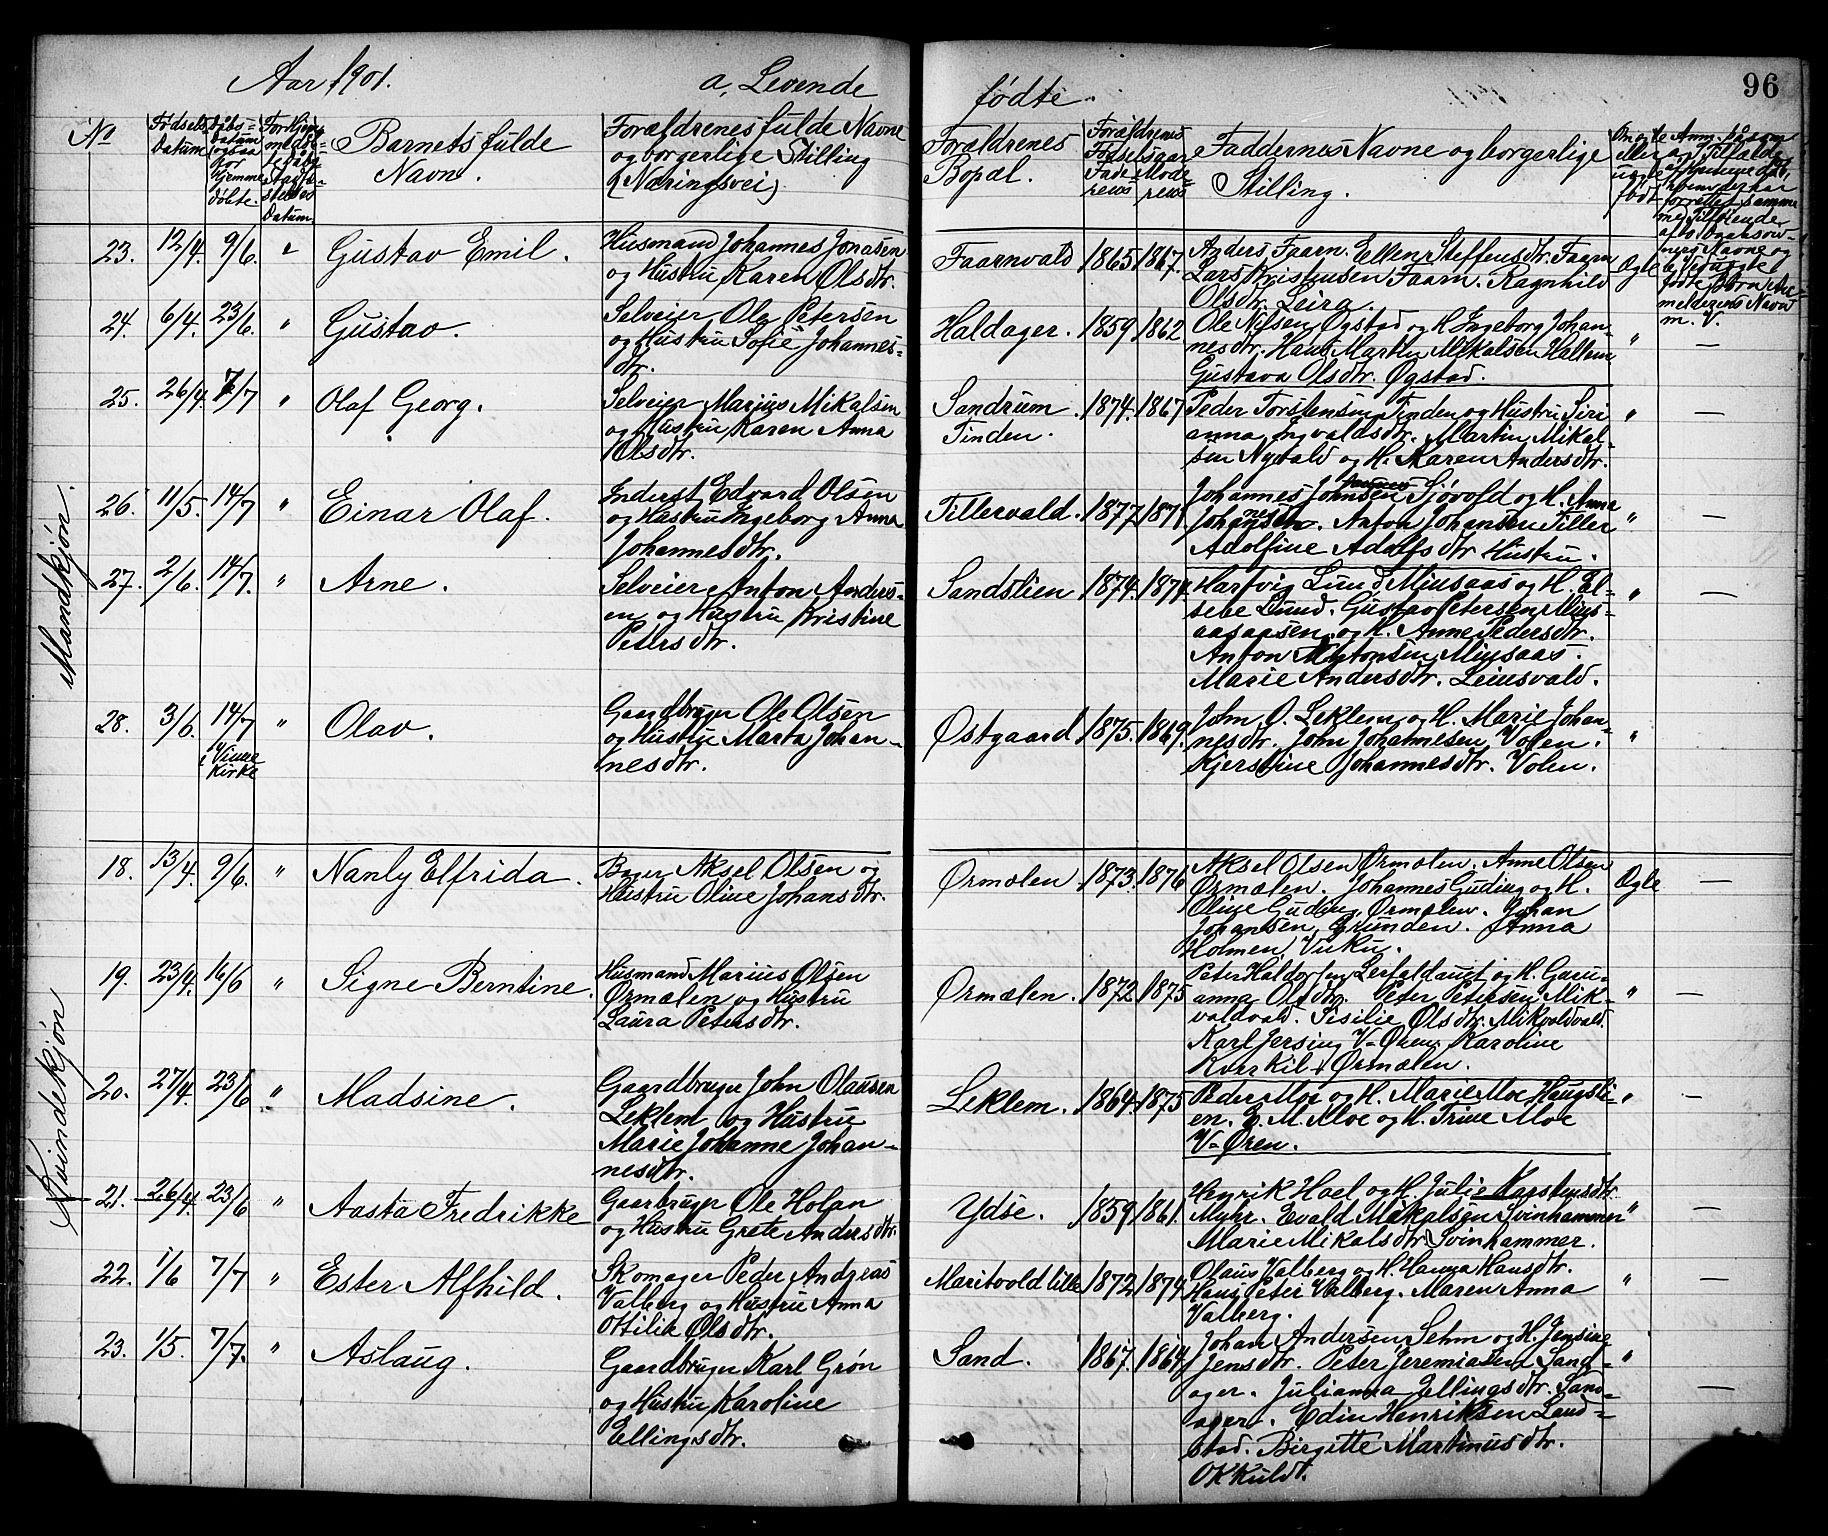 Aar 1901. a, Levende fødte. 96
No
Fødsels
Datum
Barnets fulde
Navn.
Forældrenes fulde Navne
og borgerlige Stilling
(Næringsvei)
Forældrenes
Bopæl.
Forældrenes
Fødselsaar
Fade-
rens
Mode-
rens
Faddernes Navne og borgerlige
Stilling.
Mandkjøn.
23. 12/4. 9/6. " Gustav Emil.
Husmand Johannes Jonasen
og Hustru Karen Olsdtr.
Faarnvald 1865 1867.
Anders Faarn. Ellen Steffensdtr. Faarn
Lars Kristensen Faarn. Ragnhild
Olsdtr. Leira.
Ægte
24. 6/4. 23/6. " Gustav.
Selveier Ole Petersen
og Hustru Sofie Johannes-
dtr.
Haldager. 1859 1862
Ole Nilsen Øgstad og H. Ingeborg Johan-
nesdtr. Hans Martin Mikalsen Hallem
Gustava Olsdtr. Øgstad.
" —
25. 26/4. 7/7 " Olaf Georg.
Selveier Marius Mikalsen
og Hustru Karen Anna
Olsdtr.
Sandrum
Tinden.
1874. 1867
Peder Torstensen Tinden og Hustru Siri
anna Ingvaldsdtr. Martin Mikal-
sen Nyvald og H. Karen Andersdtr.
" —
26. 11/5. 14/7 " Einar Olaf.
Inderst Edvard Olsen
og Hustru Ingeborg Anna
Johannesdtr.
Tillervald. 1877 1871
Johannes Johnsen Sjøvold og H. Anna
Anton Johansen Tiller
Adolfine Adolfsdtr Hustru.
" —
27. 2/6. 14/7. " Arne.
Selveier Anton Anders-
en og Hustru Kristine
Petersdtr.
Sandslien 1874. 1874.
Hartvig Lund Miusaas og H. El-
sebe Lund. Gustav Petersen Mius-
og H. Anne Pedersdtr.
Anton Antonsen Miusaas.
Marie Andersdtr. Leinsvald.
" —
28. 3/6. 14/7 " Olav.
i Vinne
Kirke
Gaardbruger Ole Olsen
og Hustru Marta Johan-
nesdtr.
Østgaard 1875. 1869.
John O. Leklem og H. Marie Johan-
nesdtr. John Johannesen Volen.
Kjerstine Johannesdtr. Volen.
"
Kvindekjøn
18. 13/4. 9/6. " Nanly Elfrida.
Bager Aksel Olsen og
Hustru Oline Johansdtr.
Ørmælen 1873. 1876
Aksel Olsen Ørmælen. Anne Olsen
Ørmælen. Johannes Guding og H.
Oline Guding Ørmælen. Johan
Johansen Grunden. Anna
Holmen, Vuku.
Ægte —
19. 23/4. 16/6 " Signe Berntine.
Husmand Marius Olsen
Ørmælen og Hustru
Laura Petersdtr.
Ørmælen. 1872 1875
anna Olsdtr. Peter Petersen Mik-
valdvald. Sisilie Olsdtr. Mikvaldvald.
Karl Jersing V-Øren. Karoline
Ørmælen.
" —
20. 27/4. 23/6 " Madsine.
Gaardbruger John Olausen
Leklem og Hustru
Marie Johanne Johan-
nesdtr.
Leklem. 1864. 1875
Peder Moe og H. Marie Moe Haugsli-
en. E. M. Moe og H. Trine Moe
V-Øren.
" -
21. 26/4. 23/6 " Aasta Fredrikke
Gaarbruger Ole Holan
og Hustru Grete Andersdtr.
Ydse. 1859 1861.
Henrik Hoel og H. Julie Karstensdtr.
Myhr. Evald Mikalsen Svinhammer
Marie Mikalsdtr. Svinhammer.
" —
22. 1/6 7/7 " Ester Alfhild.
Skomager Peder Andreas
Valberg og Hustru Anna
Ottilie Olsdtr.
Maritvold lille 1872 1874
Olaus Valberg og H. Hanna Hansdtr.
Hans Peter Valberg. Maren Anna
Valberg.
" —
23. 1/5. 7/7. " Aslaug.
Gaardbruger Karl Grøn
og Hustru Karoline
Ellingsdtr.
Sand. 1867. 1864
Johan Andersen Sehm og H. Jensine
Jensdtr. Peter Jeremiasen Sand-
ager. Julianna Ellingsdtr. Sand-
ager. Edin Henriksen Lund-
stad. Birgitte Martinusdtr.
Okkuldt.
" —